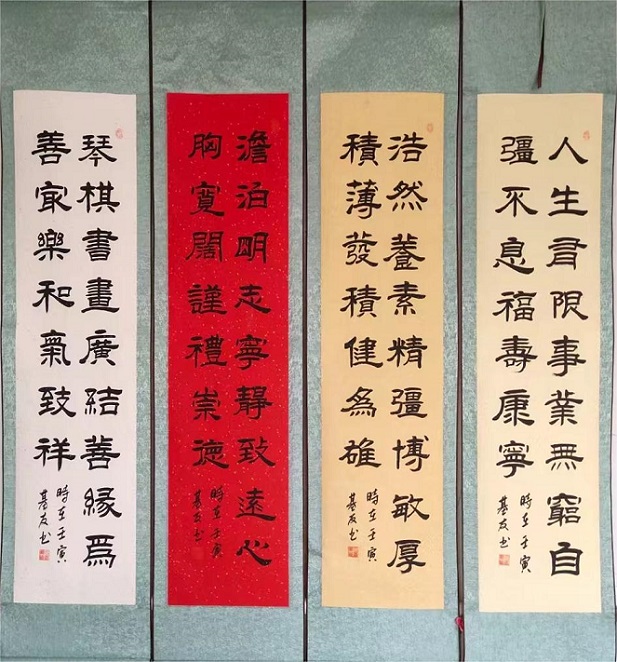 人生有限事業無窮自
彊不息福壽康寧
時在壬寅
友书
浩然養素精彊博敏厚
積薄發積健為雄
時在壬寅
友书
澹泊明志寧靜致遠心
胸寬闊謹禮崇德
時在壬寅
友书
琴棋書畫廣結善緣爲
善家樂和氣致祥
時在壬寅
友书